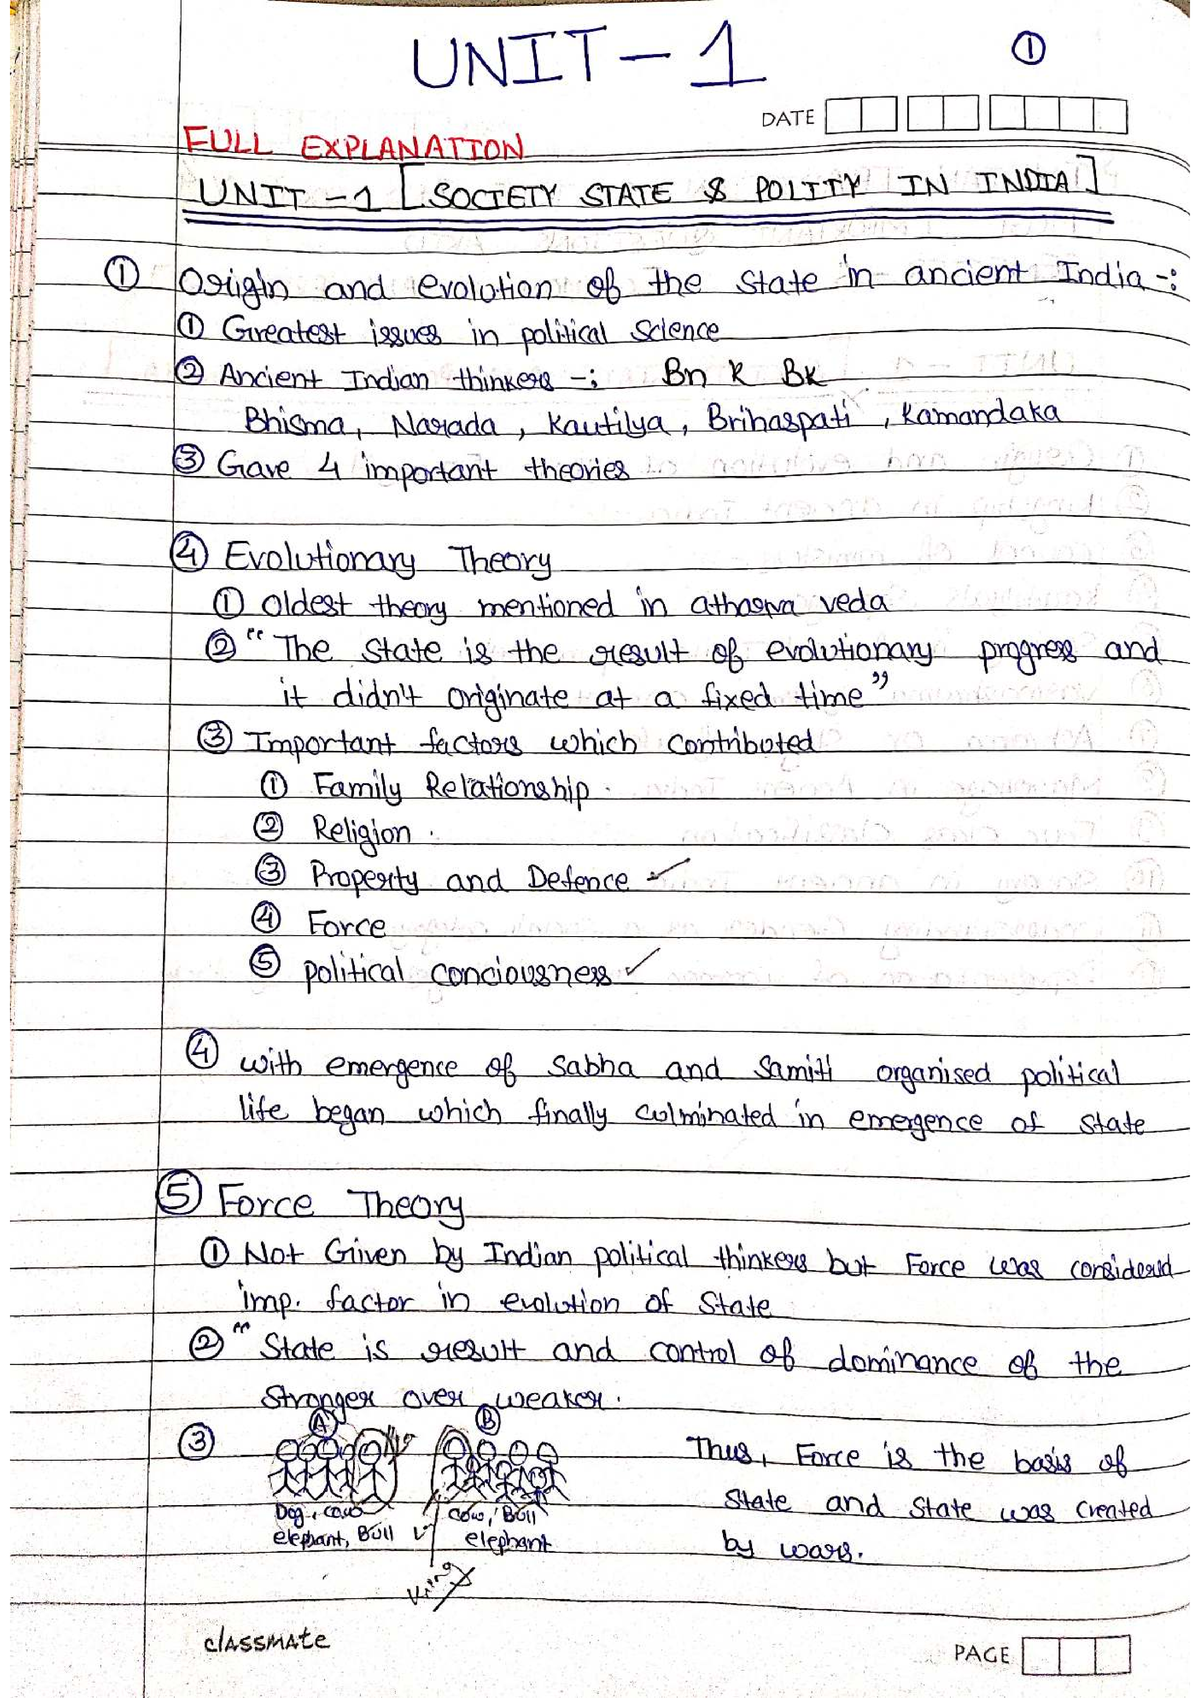 UNIT - 1
①
DATE
FULL EXPLANATION
UNIT - 1 [SOCIETY STATE & POLITY IN INDIA]
① Origin and evolution of the state in ancient India -:
① Greatest issues in political science
② Ancient Indian thinkers -: Bn K Bk
Bhisma, Narada, Kautilya, Brihaspati, Kamandaka
③ Gave 4 important theories
④ Evolutionary Theory
① Oldest theory mentioned in atharva veda
② "The state is the result of evolutionary progress and
it didn't originate at a fixed time"
③ Important factors which contributed
① Family Relationship.
② Religion.
③ Property and Defence ✓
④ Force
⑤ political conciousness ✓
④ with emergence of Sabha and Samiti organised political
life began which finally culminated in emergence of state
⑤ Force Theory
① Not Given by Indian political thinkers but Force was considered
imp. factor in evolution of State
② "State is result and control of dominance of the
Stronger over weaker.
③ Ⓐ Ⓑ Thus, Force is the basis of
Dog, cow cow, Bull State and State was created
elephant, Bull elephant by wars.
King
classmate
PAGE